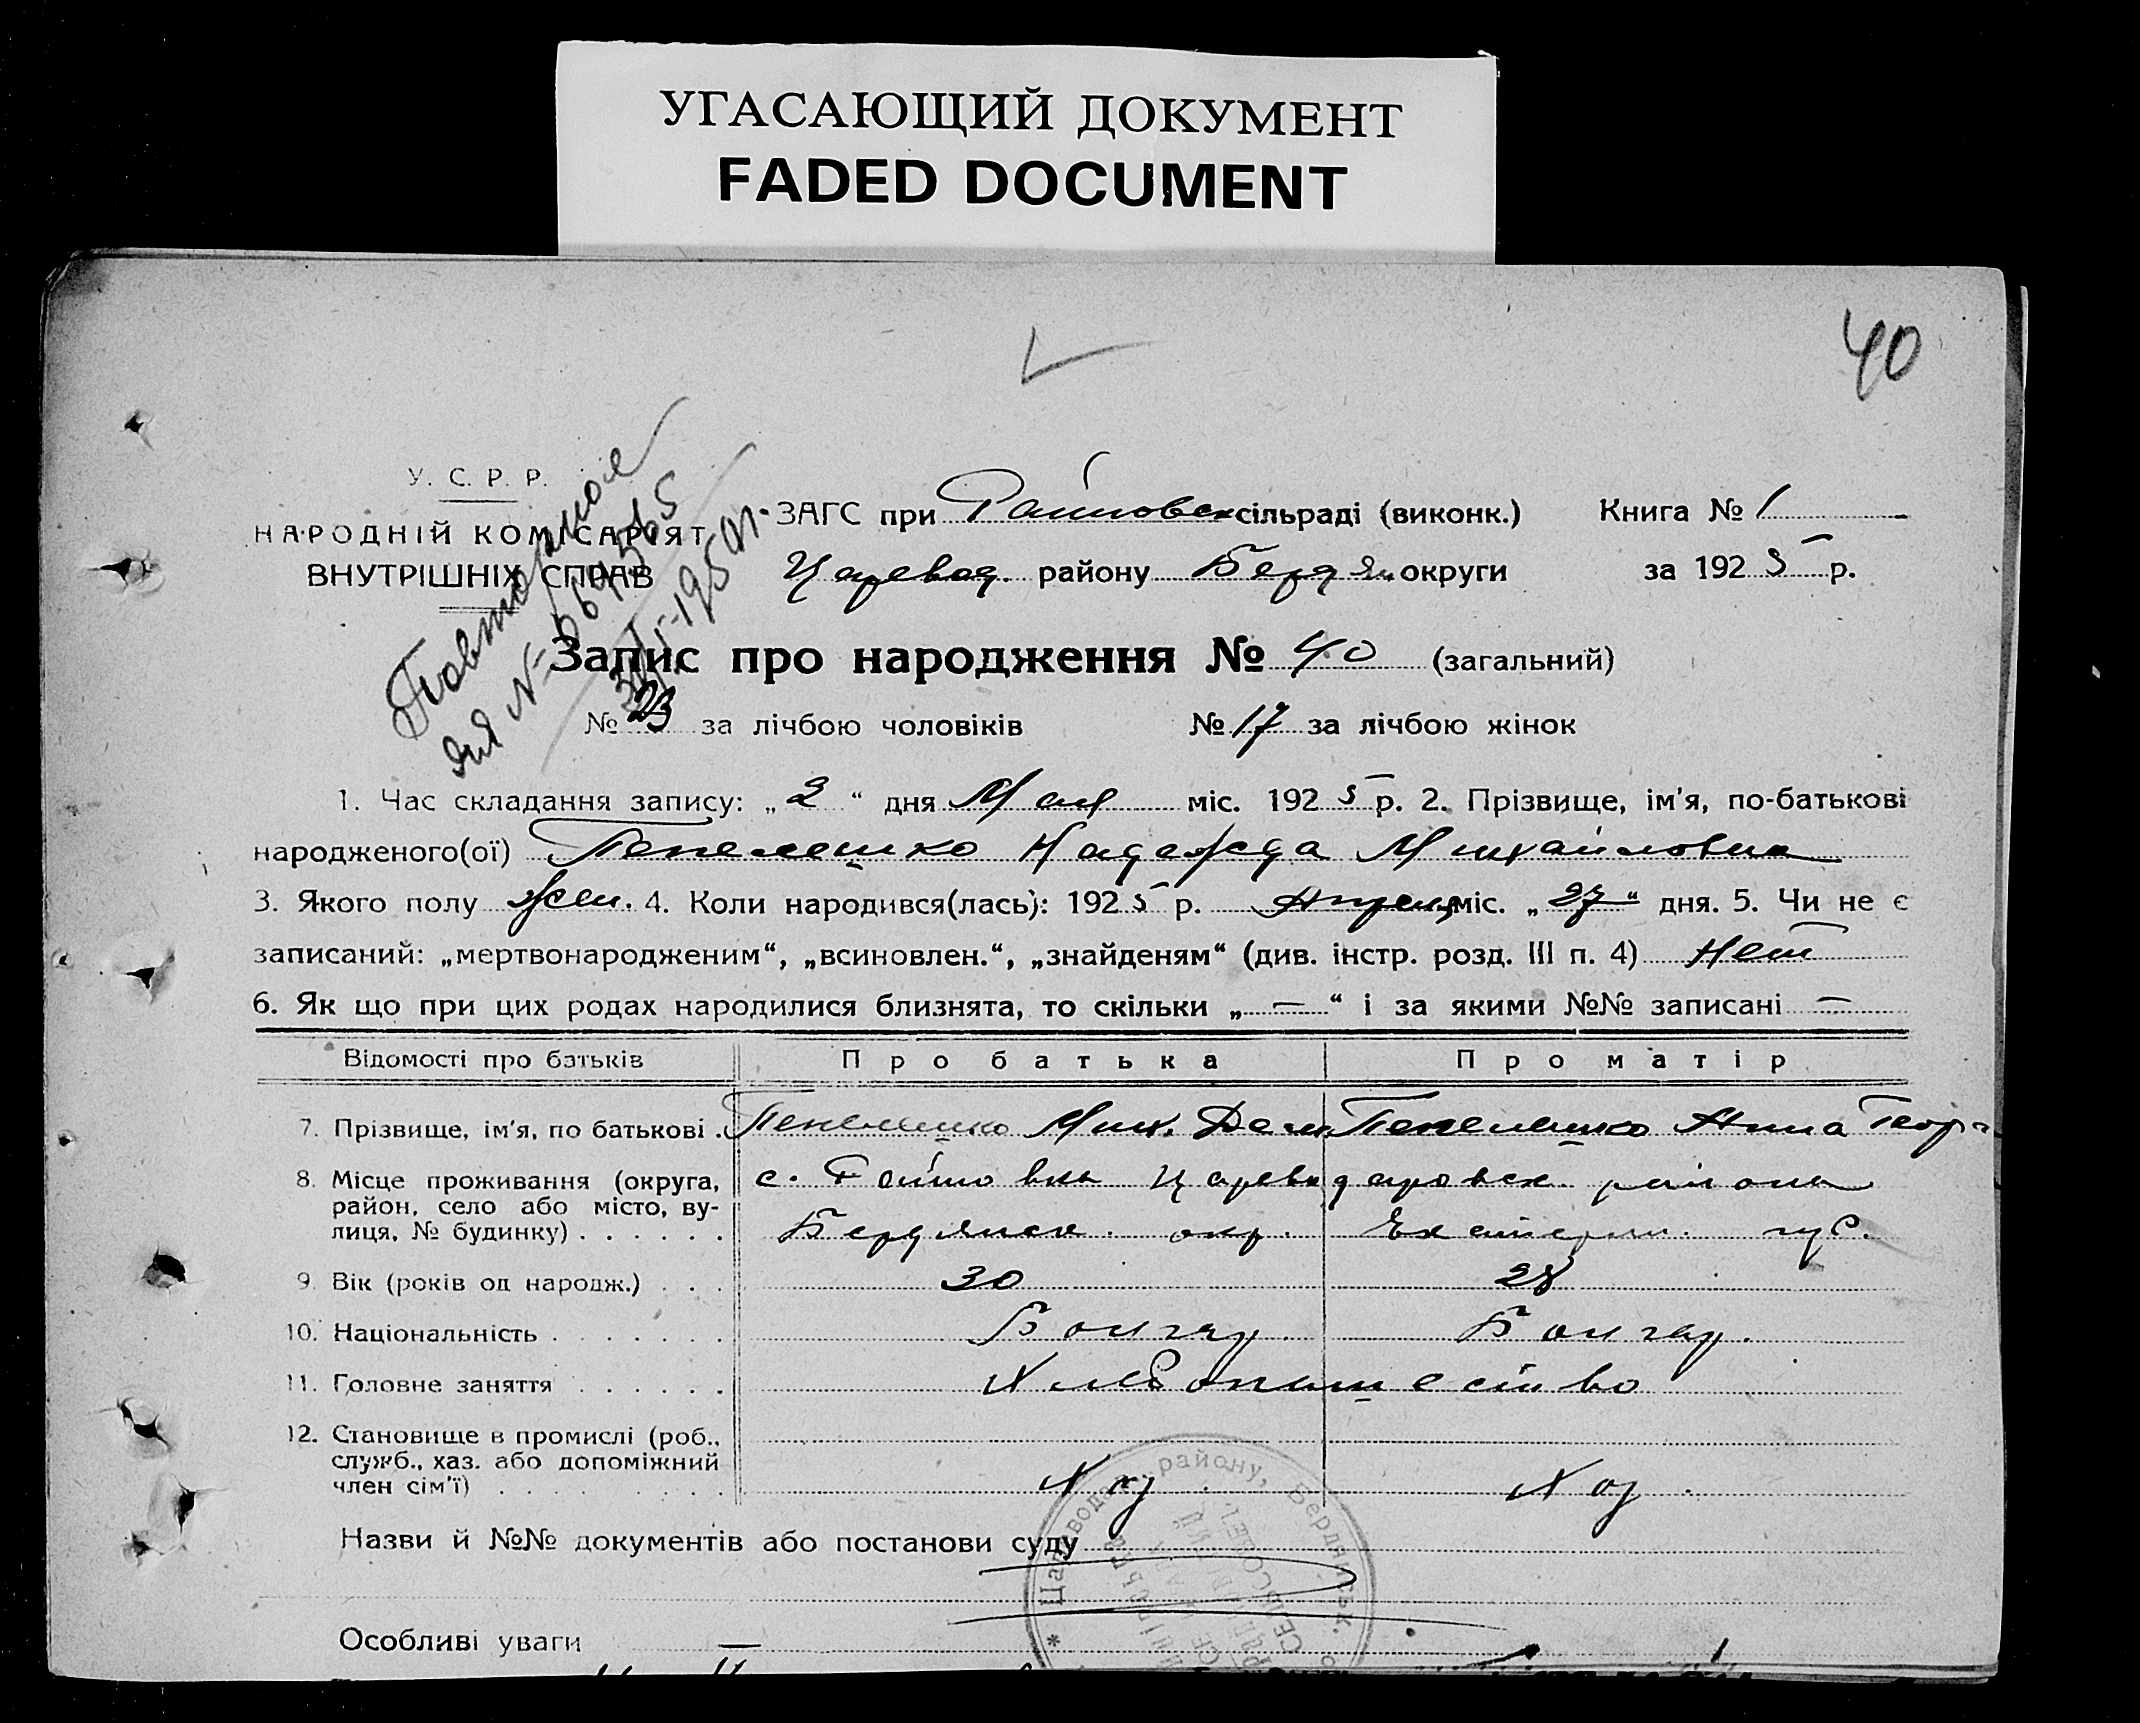 УГАСАЮЩИЙ ДОКУМЕНТ
FADED DOCUMENT
40
У. С. Р. Р.
НАРОДНІЙ КОМІСАРІЯТ
ВНУТРІШНІХ СПРАВ
Повторное
для №
ЗАГС при Райновск сільраді (виконк.) Книга № 1
Царевод. району Бердян. округи за 1925 р.
Запис про народження № 40 (загальний)
№ 23 за лічбою чоловіків № 17 за лічбою жінок
1. Час складання запису: „ 2 “ дня Мая міс. 1925 р. 2. Прізвище, ім'я, по-батькові
народженого(ої) Пепелешко Надежда Михайловна
3. Якого полу жен. 4. Коли народився(лась): 1925 р. Апреля міс. „ 27 “ дня. 5. Чи не є
записаний: „мертвонародженим“, „всиновлен.“, „знайденям“ (див. інстр. розд. III п. 4) Нет
6. Як що при цих родах народилися близнята, то скільки „ — “ і за якими №№ записані —
Відомості про батьків Про батька Про матір
7. Прізвище, ім'я, по батькові . Пепелешко Мих. Пепелешко Анна Георг
8. Місце проживання (округа, район, село або місто, ву- лиця, № будинку) . . . . . . с. Райновка Цареводаровск. района
Бердянск. окр. Екатерин. губ.
9. Вік (років од народж.) . . . 30 28
10. Національність . . . . . . . Болгар. Болгар.
11. Головне заняття . . . . . . Хлебопашество
12. Становище в промислі (роб.,
служб., хаз. або допоміжний
член сім'ї) . . . . . . . . Хоз. Хоз.
Назви й №№ документів або постанови суду
Царевода району, Бердянськ.
Особливі уваги —